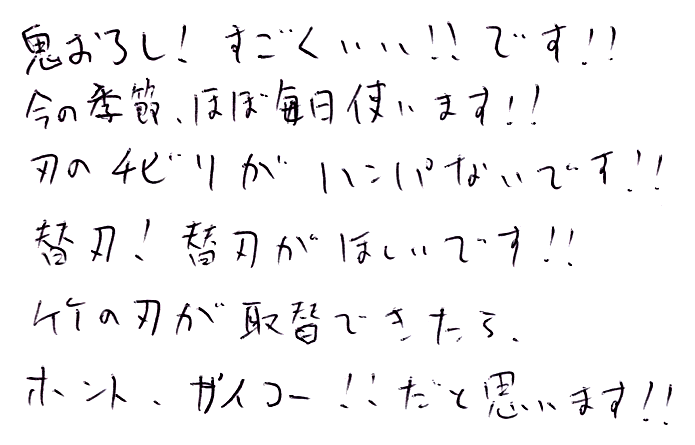 鬼おろし！すごくいい!!です!!
今の季節、ほぼ毎日使います!!
刃のチビリがハンパないです!!
替刃！替刃がほしいです!!
竹の刃が取替できたら、
ホント、サイコー!!だと思います!!